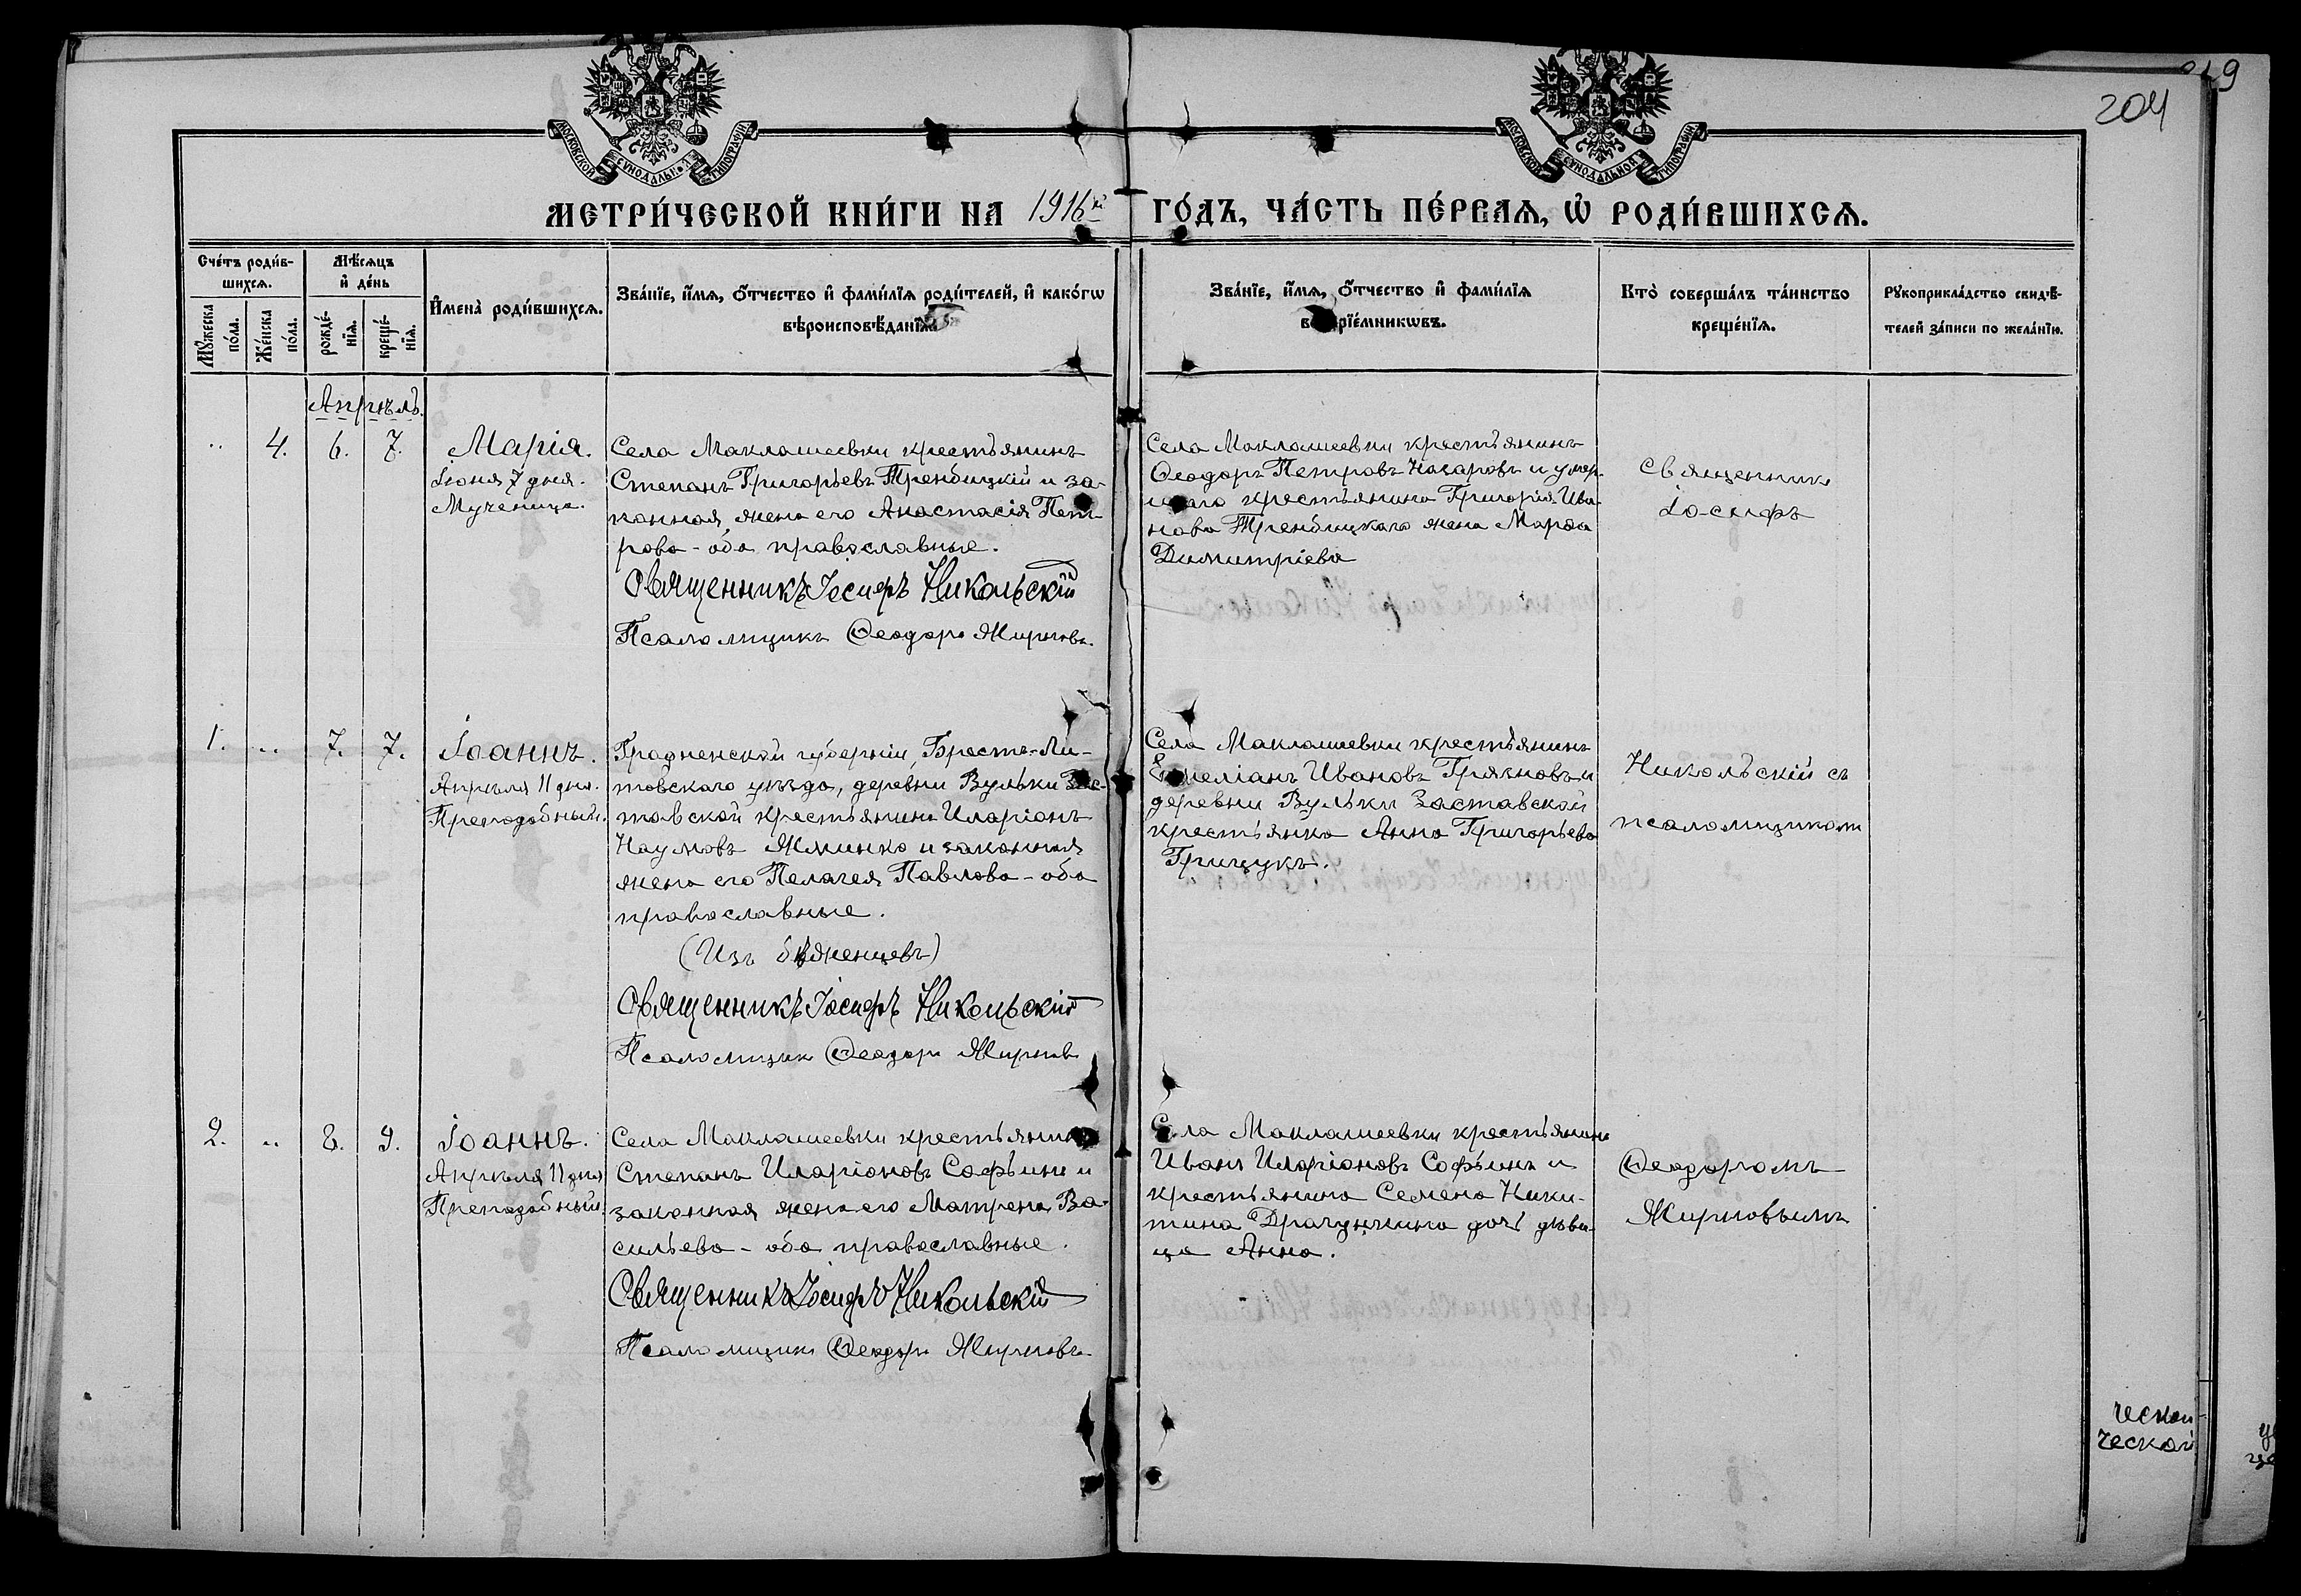 219
204
МОСКОВСКОЙ СѴНОДАЛЬНОЙ ТИПОГРАФІИ
МОСКОВСКОЙ СѴНОДАЛЬНОЙ ТИПОГРАФІИ
МЕТРИ́ЧЕСКОЙ КНИ́ГИ НА 1916й ГО́ДЪ, ЧА́СТЬ ПЕ́РВАѦ, Ѡ҆ РОДИ́ВШИХСѦ.
Сче́тъ роди́в-
шихсѧ.
Мꙋ́жеска по́ла.
Же́нска по́ла.
Мѣ́сѧцъ
и҆ де́нь
рожде́-
нїѧ.
креще́-
нїѧ.
И҆мена̀ роди́вшихсѧ.
Зва́нїе, и҆́мѧ, ѻ҆́тчество и҆ фами́лїѧ роди́телей, и҆ како́гѡ
вѣроисповѣ́данїѧ.
Зва́нїе, и҆́мѧ, ѻ҆́тчество и҆ фами́лїѧ
воспрїе́мникѡвъ.
Кто̀ соверша́лъ та́инство
креще́нїѧ.
Рꙋкоприкла́дство свидѣ́-
телей за́писи по жела́нїю.
Апрѣль.
" 4. 6. 7.
Марія.
Іюня 7 дня.
Мученица.
Села Маклашеевки крестьянинъ
Степанъ Григорьевъ Трембицкій и за-
конная жена его Анастасія Пет-
рова - оба православные.
Священникъ Іосифъ Никольскій
Псаломщикъ Ѳеодоръ Жирновъ.
Села Маклашеевки крестьянинъ
Ѳеодоръ Петровъ Назаровъ и умер-
шаго крестьянина Григорія Ива-
нова Трембицкаго жена Марѳа
Димитріева
Священникъ
Іосифъ
1. " 7. 7.
Іоаннъ.
Апрѣля 11 дня.
Преподобный.
Гродненской губерніи, Бресто-Ли-
товскаго уѣзда, деревни Вульки Зас-
тавской крестьянинъ Иларіонъ
Наумовъ Жминко и законная
жена его Пелагея Павлова - оба
православные.
(Изъ бѣженцевъ)
Священникъ Іосифъ Никольскій
Псаломщикъ Ѳеодоръ Жирновъ
Села Маклашеевки крестьянинъ
Емеліанъ Ивановъ Грязновъ и
деревни Вульки Заставской
крестьянка Анна Григорьева
Грицукъ.
Никольскій съ
псаломщикомъ
2. " 8. 9.
Іоаннъ.
Апрѣля 11 дня
Преподобный.
Села Маклашеевки крестьянинъ
Степанъ Иларіоновъ Софьинъ и
законная жена его Матрена Ва-
сильева - оба православные.
Священникъ Іосифъ Никольскій
Псаломщикъ Ѳеодоръ Жирновъ
Села Маклашеевки крестьянинъ
Иванъ Иларіоновъ Софьинъ и
крестьянина Семена Ники-
тина Драгункина дочь дѣви-
ца Анна.
Ѳеодоромъ
Жирновымъ
ческой
ческой